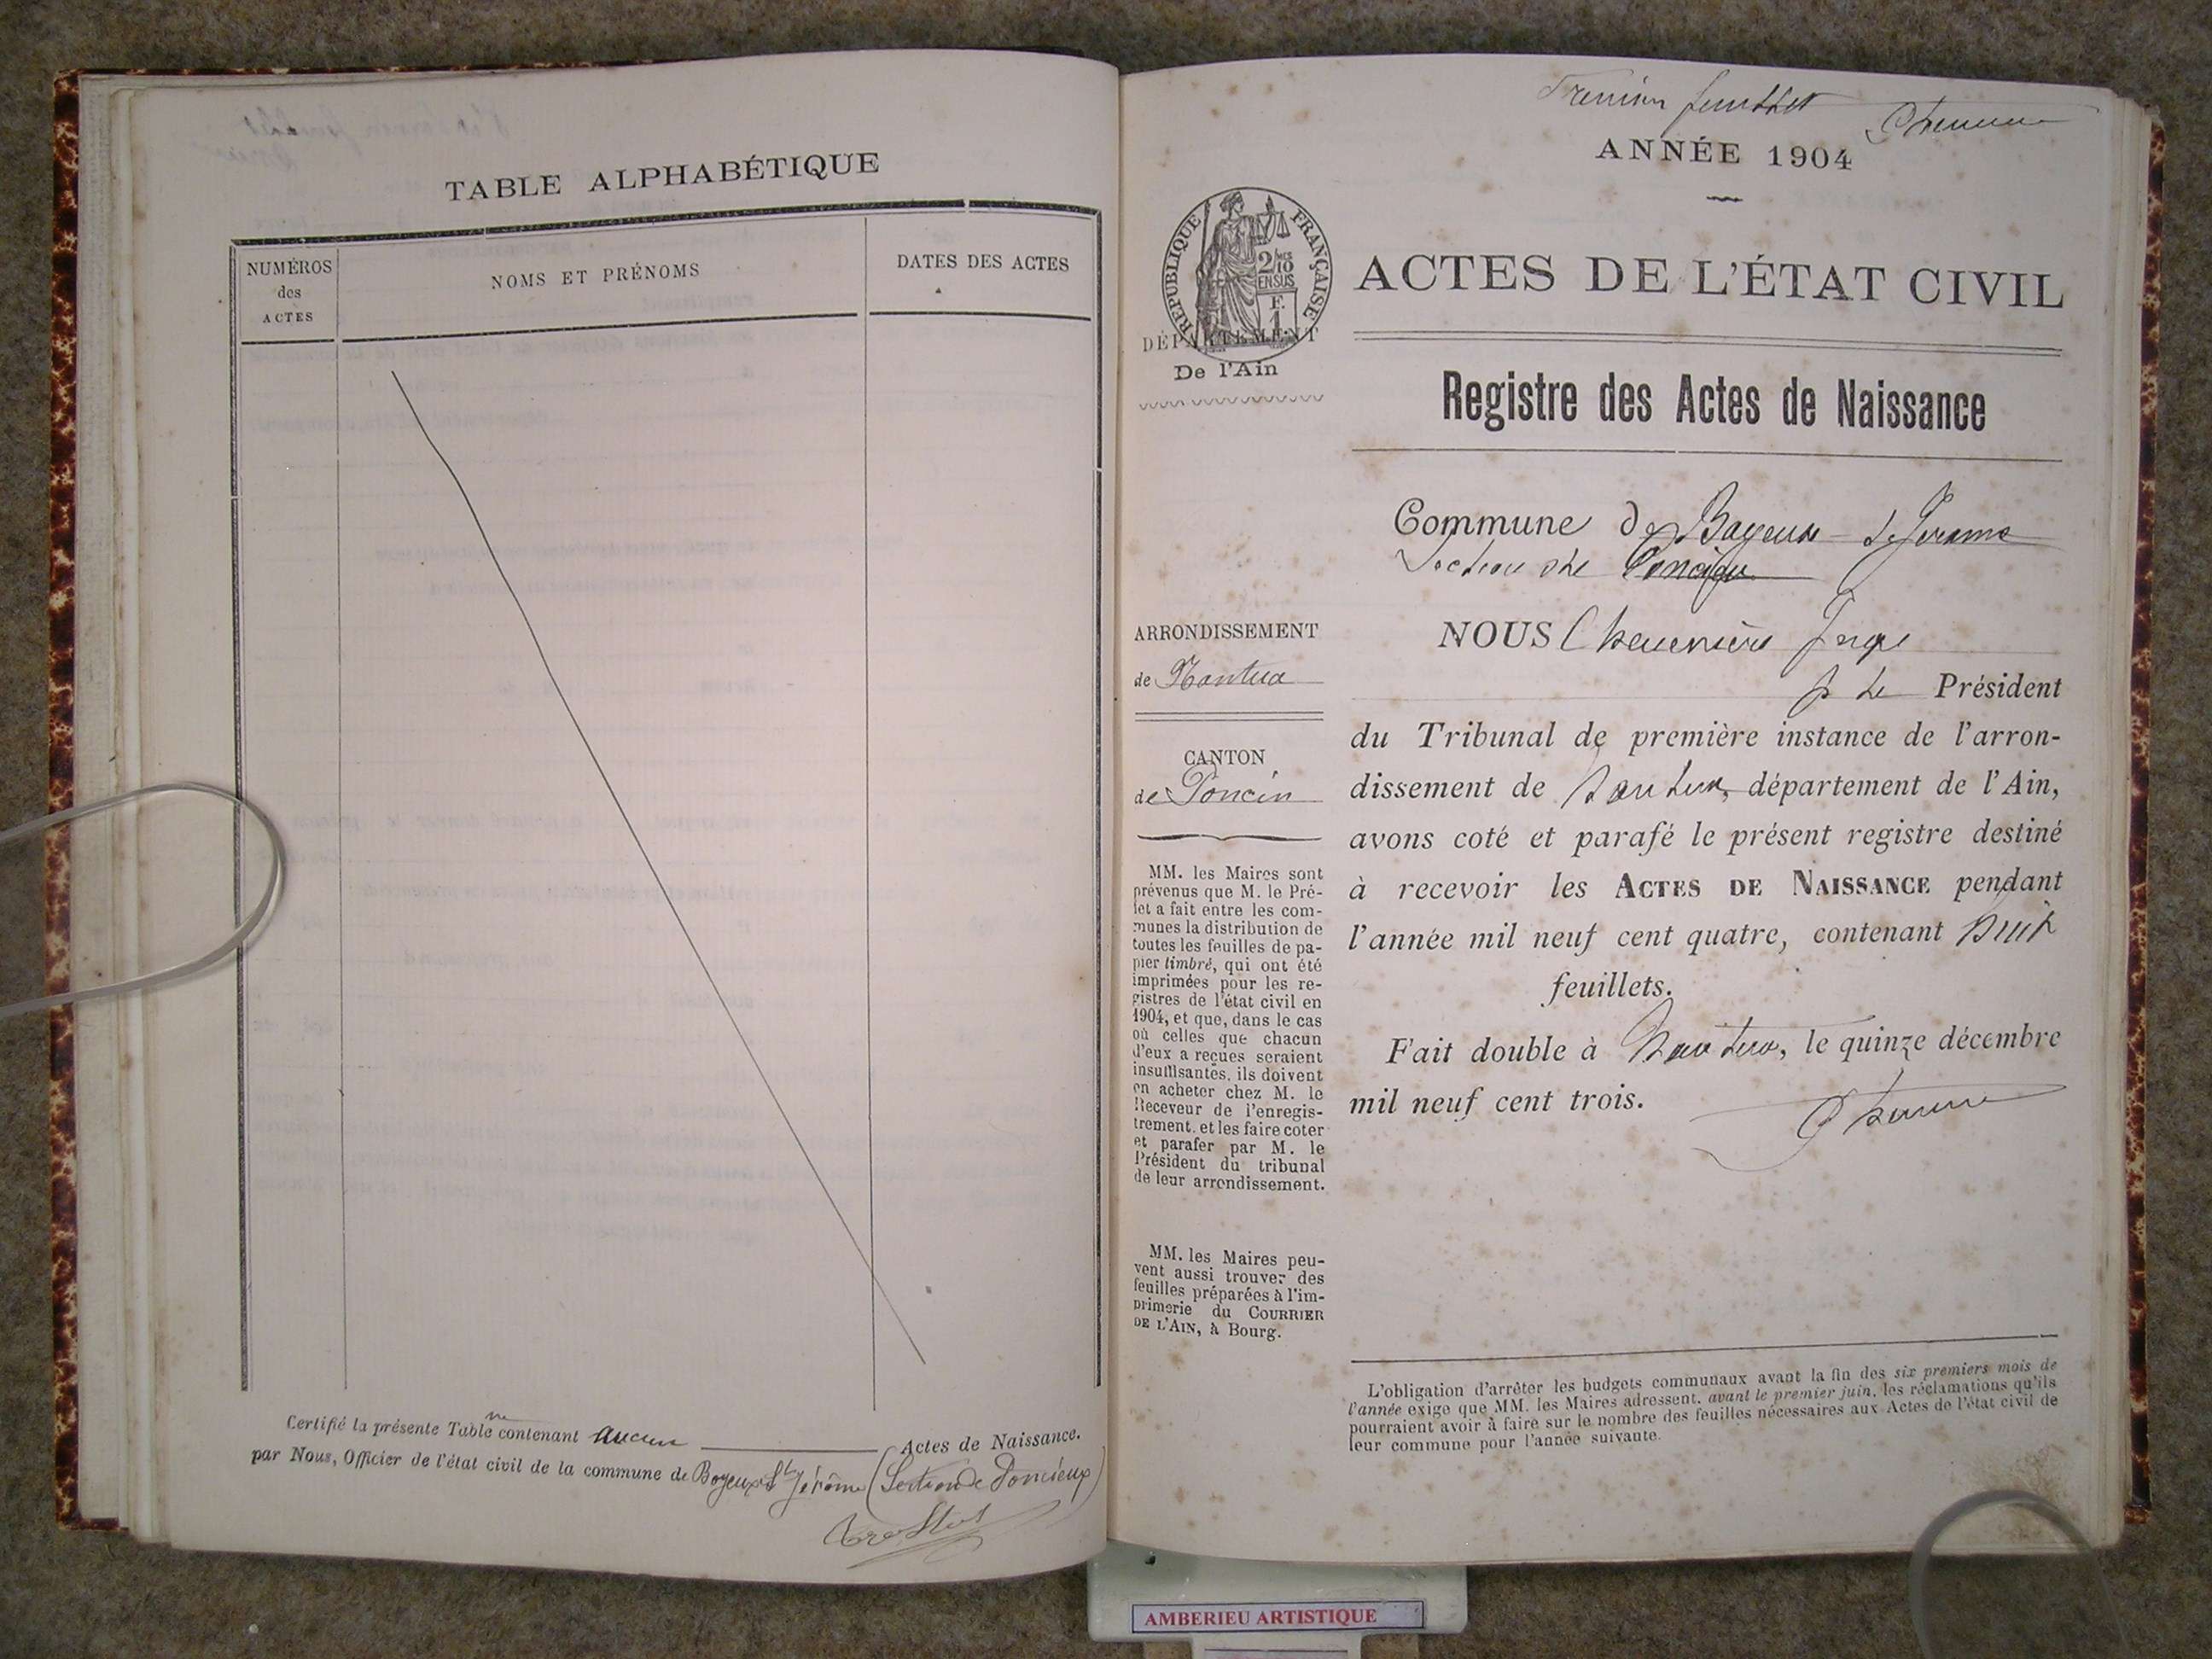 TABLE ALPHABÉTIQUE
NUMÉROS
des
ACTES
NOMS ET PRÉNOMS
DATES DES ACTES
Certifié la présente Table ne contenant aucun Actes de Naissance.
par Nous, Officier de l'état civil de la commune de Boyeux St Jérôme (Section de Poncieux)
Premier feuillet
ANNÉE 1904
RÉPUBLIQUE FRANÇAISE
2/10
EN SUS
F.
1
DÉPARTEMENT
De l'Ain
ACTES DE L'ÉTAT CIVIL
Registre des Actes de Naissance
Commune de Boyeux St Jérôme
Section de Poncieux
ARRONDISSEMENT
de Nantua
CANTON
de Poncin
MM. les Maires sont
prévenus que M. le Pré-
fet a fait entre les com-
munes la distribution de
toutes les feuilles de pa-
pier timbré, qui ont été
imprimées pour les re-
gistres de l'état civil en
1904, et que, dans le cas
où celles que chacun
d'eux a reçues seraient
insuffisantes, ils doivent
en acheter chez M. le
Receveur de l'enregis-
trement, et les faire coter
et parafer par M. le
Président du tribunal
de leur arrondissement.
MM. les Maires peu-
vent aussi trouver des
feuilles préparées à l'im-
primerie du COURRIER
DE L'AIN, à Bourg.
NOUS
Président
du Tribunal de première instance de l'arron-
dissement de Nantua, département de l'Ain,
avons coté et parafé le présent registre destiné
à recevoir les ACTES DE NAISSANCE pendant
l'année mil neuf cent quatre, contenant huit
feuillets.
Fait double à Nantua, le quinze décembre
mil neuf cent trois.
L'obligation d'arrêter les budgets communaux avant la fin des six premiers mois de
l'année exige que MM. les Maires adressent, avant le premier juin, les réclamations qu'ils
pourraient avoir à faire sur le nombre des feuilles nécessaires aux Actes de l'état civil de
leur commune pour l'année suivante.
AMBERIEU ARTISTIQUE